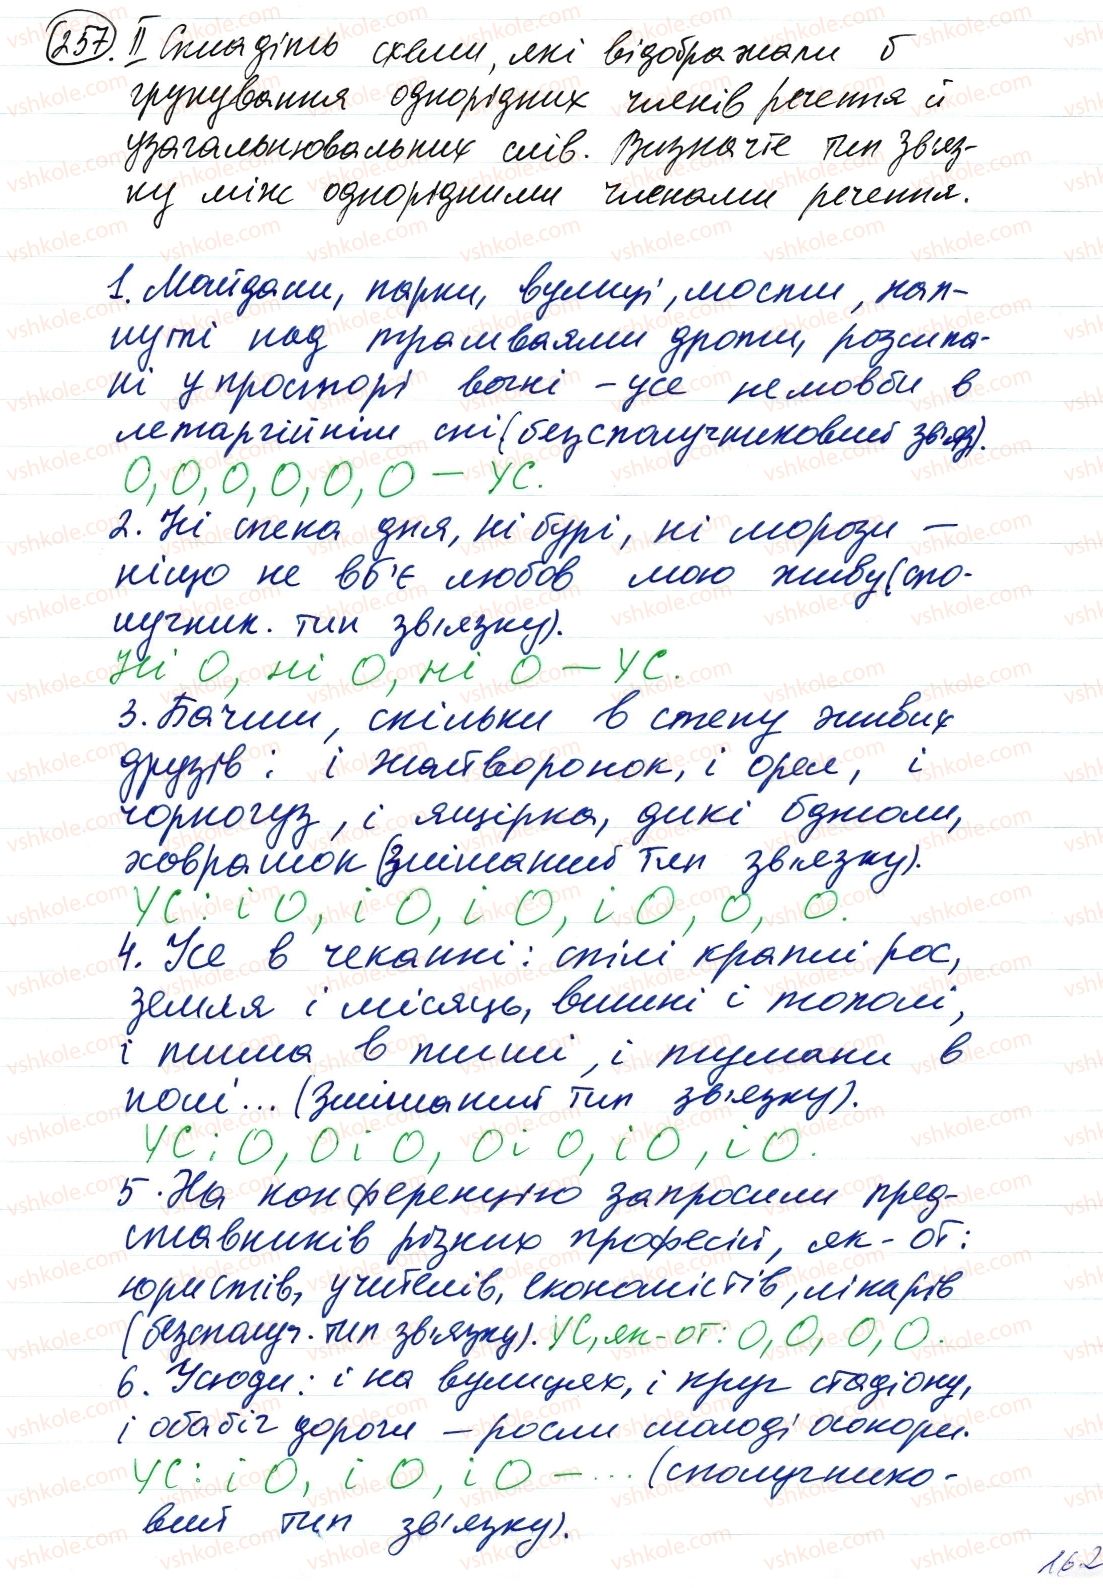 257. II Складіть схеми, які відображали б
групування однорідних членів речення й
узагальнювальних слів. Визначте тип зв'яз-
ку між однорідними членами речення.
1. Майдани, парки, вулиці, мости, нап-
нуті над трамваями дроти, розсипа-
ні у просторі вогні – усе немовби в
летаргійнім сні (безсполучниковий зв'яз).
О, О, О, О, О, О – УС.
2. Ні спека дня, ні бурі, ні морози –
ніщо не вб'є любов мою живу (спо-
лучник. тип зв'язку).
Ні О, ні О, ні О – УС.
3. Бачиш, скільки в степу живих
друзів: і жайворонок, і орел, і
чорногуз, і ящірка, дикі бджоли,
ховрашок (Змішаний тип зв'язку).
УС: і О, і О, і О, і О, О, О.
4. Усе в чеканні: спілі краплі рос,
земля і місяць, вишні і тополі,
і тиша в тиші, і тумани в
полі... (Змішаний тип зв'язку).
УС: О, О і О, О і О, і О, і О.
5. На конференцію запросили пред-
ставників різних професій, як-от:
юристів, учителів, економістів, лікарів
(безсполуч. тип зв'язку). УС, як-от: О, О, О, О.
6. Усюди: і на вулицях, і круг стадіону,
і обабіч дороги – росли молоді осокори.
УС: і О, і О, і О – ... (сполучнико-
вий тип зв'язку).
162
vshkole.com